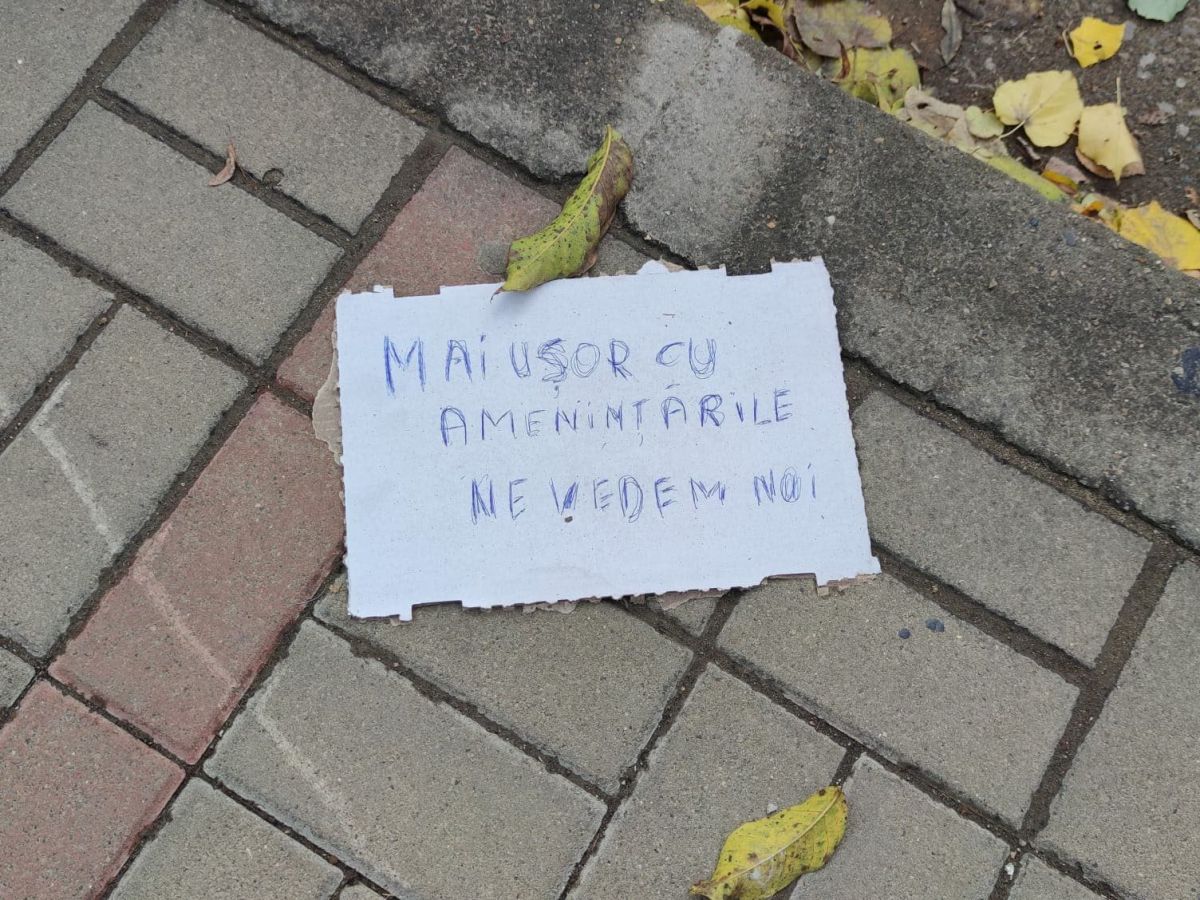 MAI UȘOR CU
AMENINȚĂRILE
NE VEDEM NOI